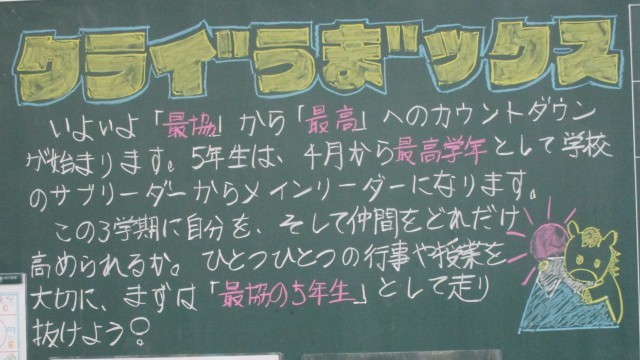 クライうまックス
いよいよ「最協」から「最高」へのカウントダウン
が始まります。5年生は、4月から最高学年として学校
のサブリーダーからメインリーダーになります。
この3学期に自分を、そして仲間をどれだけ
高められるか。ひとつひとつの行事や授業を
大切に、まずは「最協の5年生」として走り
抜けよう!